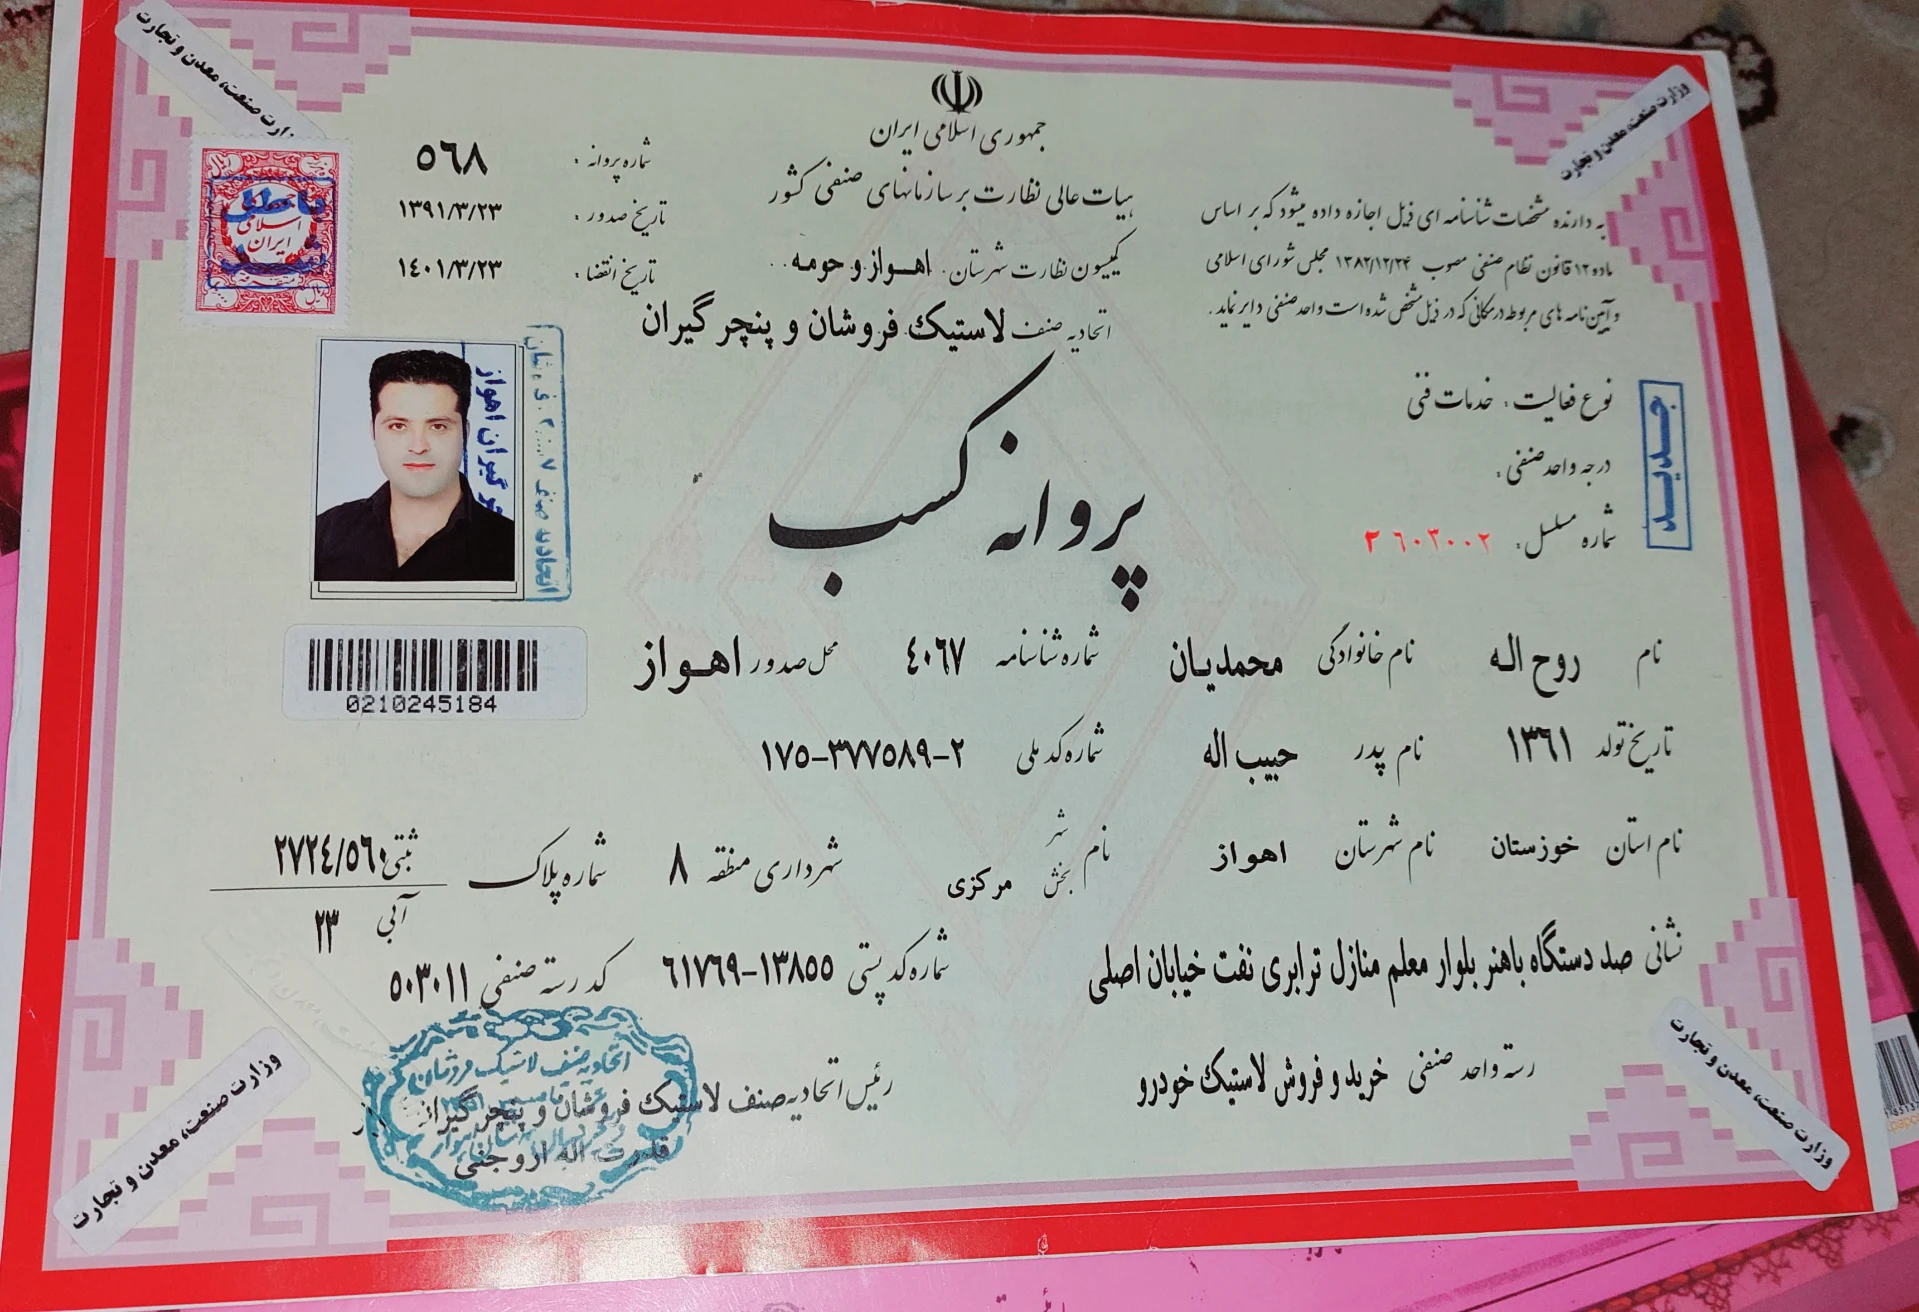 جمهوری اسلامی ایران
هیات عالی نظارت بر سازمانهای صنفی کشور
کمیسیون نظارت شهرستان: اهواز و حومه
اتحادیه صنف لاستیک فروشان و پنچر گیران
به دارنده مشخصات شناسنامه ای ذیل اجازه داده میشود که بر اساس
ماده ۱۲ قانون نظام صنفی مصوب ۱۳۸۲/۱۲/۲۴ مجلس شورای اسلامی
و آیین نامه های مربوطه در مکانی که در ذیل مشخص شده است واحد صنفی دایر نماید.
شماره پروانه: ۵۶۸
تاریخ صدور: ۱۳۹۱/۳/۲۳
تاریخ انقضا: ۱۴۰۱/۳/۲۳
باطل شد
جمهوری اسلامی ایران
نوع فعالیت: خدمات فنی
درجه واحد صنفی:
شماره مسلسل: ۲۶۰۳۰۰۲
جدید
پروانه کسب
گیران اهواز
اتحادیه صنف
0210245184
نام روح اله نام خانوادگی محمدیان شماره شناسنامه ۴۰۶۷ محل صدور اهواز
تاریخ تولد ۱۳۶۱ نام پدر حبیب اله شماره کد ملی ۱۷۵-۳۷۷۵۸۹-۲
نام استان خوزستان نام شهرستان اهواز نام شهر بخش مرکزی شهرداری منطقه ۸ شماره پلاک ثبتی ۲۷۲۴/۵۶۰
آبی ۲۳
نشانی صد دستگاه باهنر بلوار معلم منازل ترابری نفت خیابان اصلی شماره کد پستی ۶۱۷۶۹-۱۳۸۵۵ کد رسته صنفی ۵۰۳۰۱۱
رسته واحد صنفی خرید و فروش لاستیک خودرو
رئیس اتحادیه صنف لاستیک فروشان و پنچر گیران
قدرت اله اروجنی
اتحادیه صنف لاستیک فروشان
وزارت صنعت، معدن و تجارت
وزارت صنعت، معدن و تجارت
وزارت صنعت، معدن و تجارت
وزارت صنعت، معدن و تجارت